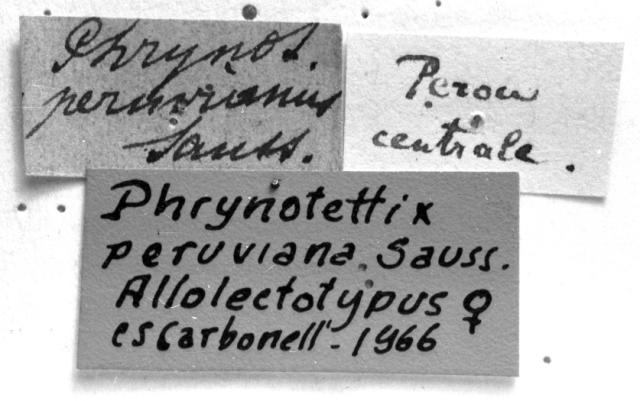 Phrynot.
peruvianus
Sauss.
Perou
centrale.
Phrynotettix
peruviana Sauss.
Allolectotypus ♀
CSCarbonell - 1966